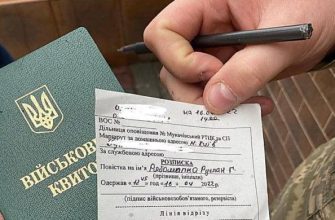 ВІЙСЬКОВ
КВИТО
на 16.0
ВОС №
Дільниця оповіщення № Мукачівський РТЦК та СП
Маршрут за домашньою адресою м. Київ
За службовою адресою
РОЗПИСКА
Повістка на ім'я Руслан Г.
(прізвище, ініціали)
Одержав « 11 » год « 16 » 04 2022р
(підпис військовозобов'язаного, резервіста)
Лінія відрізу